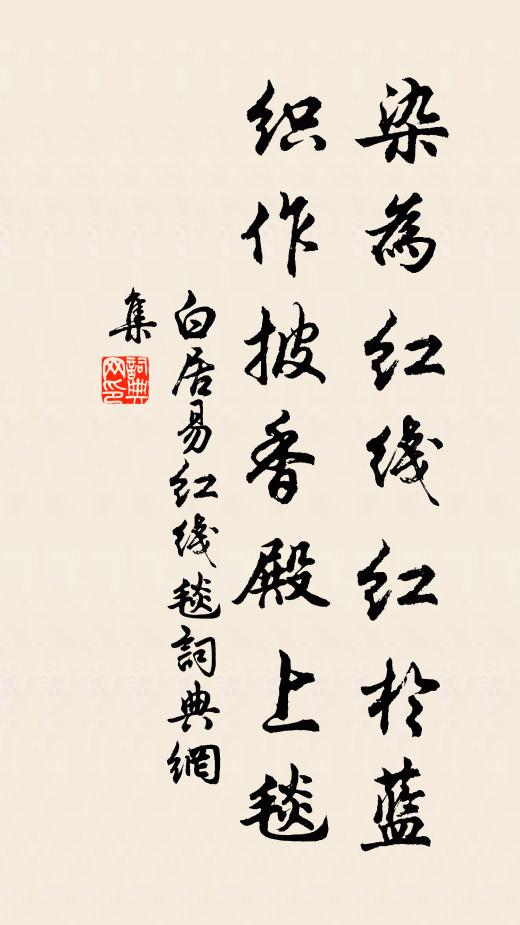 染為红线红於蓝
织作披香殿上毯
白居易红线毯詞典網
集
詞典
网印